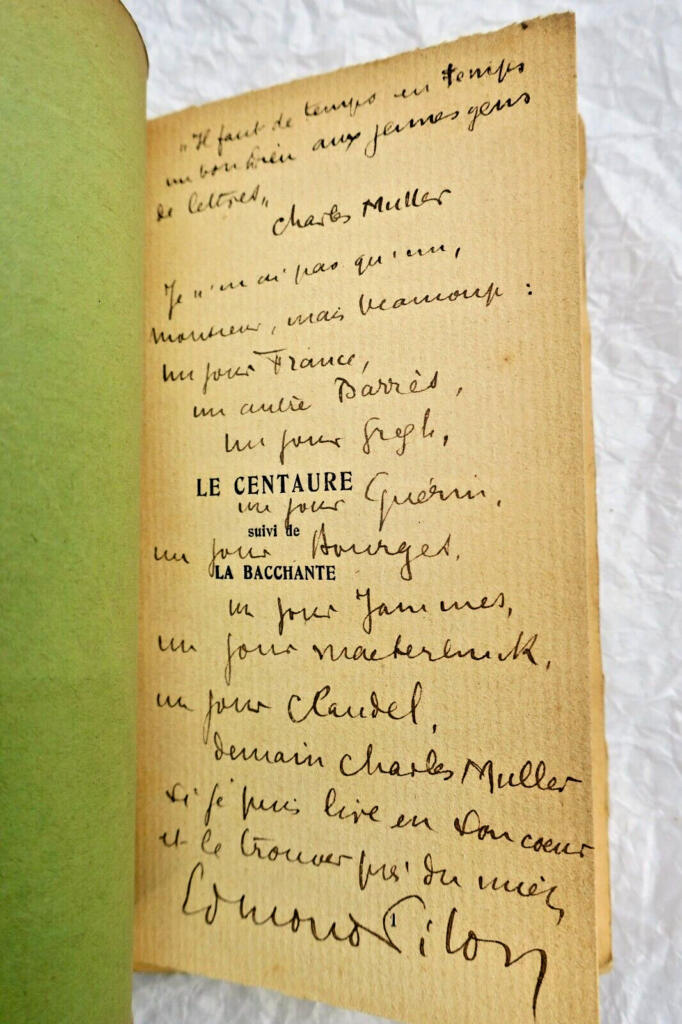 "Il faut de temps en temps
un bon Dieu aux jeunes gens
de lettres"
Charles Muller
Je n'en ai pas qu'un,
monsieur, mais beaucoup :
un jour France,
un autre Barrès,
un jour Gregh,
LE CENTAURE
un jour Guérin,
suivi de
un jour Bourges,
LA BACCHANTE
un jour Jammes,
un jour Maeterlinck,
un jour Claudel,
demain Charles Muller
si je puis lire en son coeur
et le trouver près du mien
Edmond Pilon